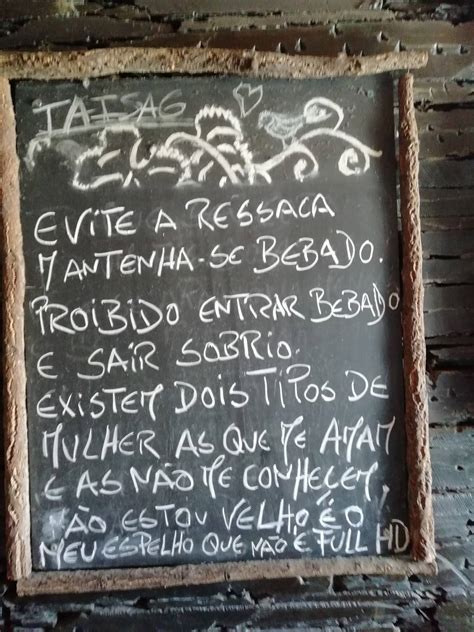 TAISAG
EVITE A RESSACA
MANTENHA-SE BEBADO.
PROIBIDO ENTRAR BEBADO
E SAIR SOBRIO.
EXISTEM DOIS TIPOS DE
MULHER AS QUE ME AMAM
E AS NÃO ME CONHEÇEM,
NÃO ESTOU VELHO É O
MEU ESPELHO QUE NÃO E FULL HD